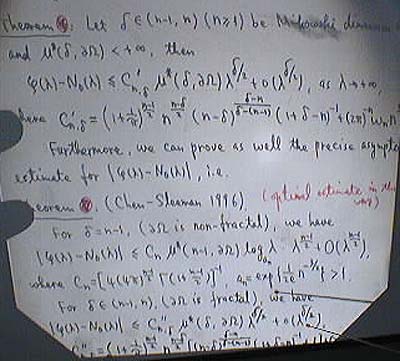 Theorem : Let δ∈(n-1, n) (n≥1) be Minkowski dimension
and μ*(δ, ∂Ω) < +∞, then
φ(λ)-N₀(λ) ≤ C'ₙ,δ μ*(δ, ∂Ω) λ^{δ/2} + o(λ^{δ/2}), as λ→+∞,
here C'ₙ,δ = (1+1/π)^{n-1/2} n^{n-δ/2} (n-δ)^{δ-n/δ-(n-1)} (1+δ-n)^{-1} + (2π)^{-n} ωₙ
Furthermore, we can prove as well the precise asympto
estimate for |φ(λ)-N₀(λ)|, i.e.
eorem . (Chen-Sleeman 1996). (optimal estimate in this way)
For δ=n-1, (∂Ω is non-fractal), we have
|φ(λ)-N₀(λ)| ≤ Cₙ μ*(n-1, ∂Ω) log λ · λ^{n-1/2} + O(λ^{n-1/2}),
where Cₙ = aₙ = exp > 1.
For δ∈(n-1, n), (∂Ω is fractal), we have
|φ(λ)-N₀(λ)| ≤ C''ₙ,δ μ*(δ, ∂Ω) λ^{δ/2} + o(λ^{δ/2})